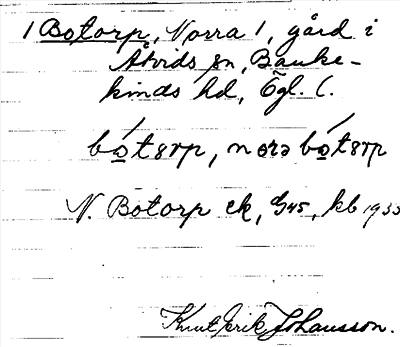 1 Botorp, Norra 1, gård i
Åtvids sn, Banke-
kinds hd, Ögl. l.
bo̲´t8rp, nørə bo̲´t8rp
N. Botorp ek, G45, kb 1933
Knut Erik Johansson.